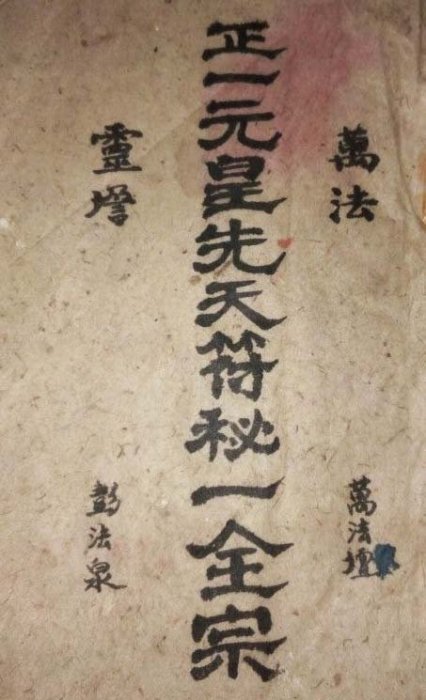 萬法
萬法壇
正一元皇先天符秘一全宗
靈
彭法泉